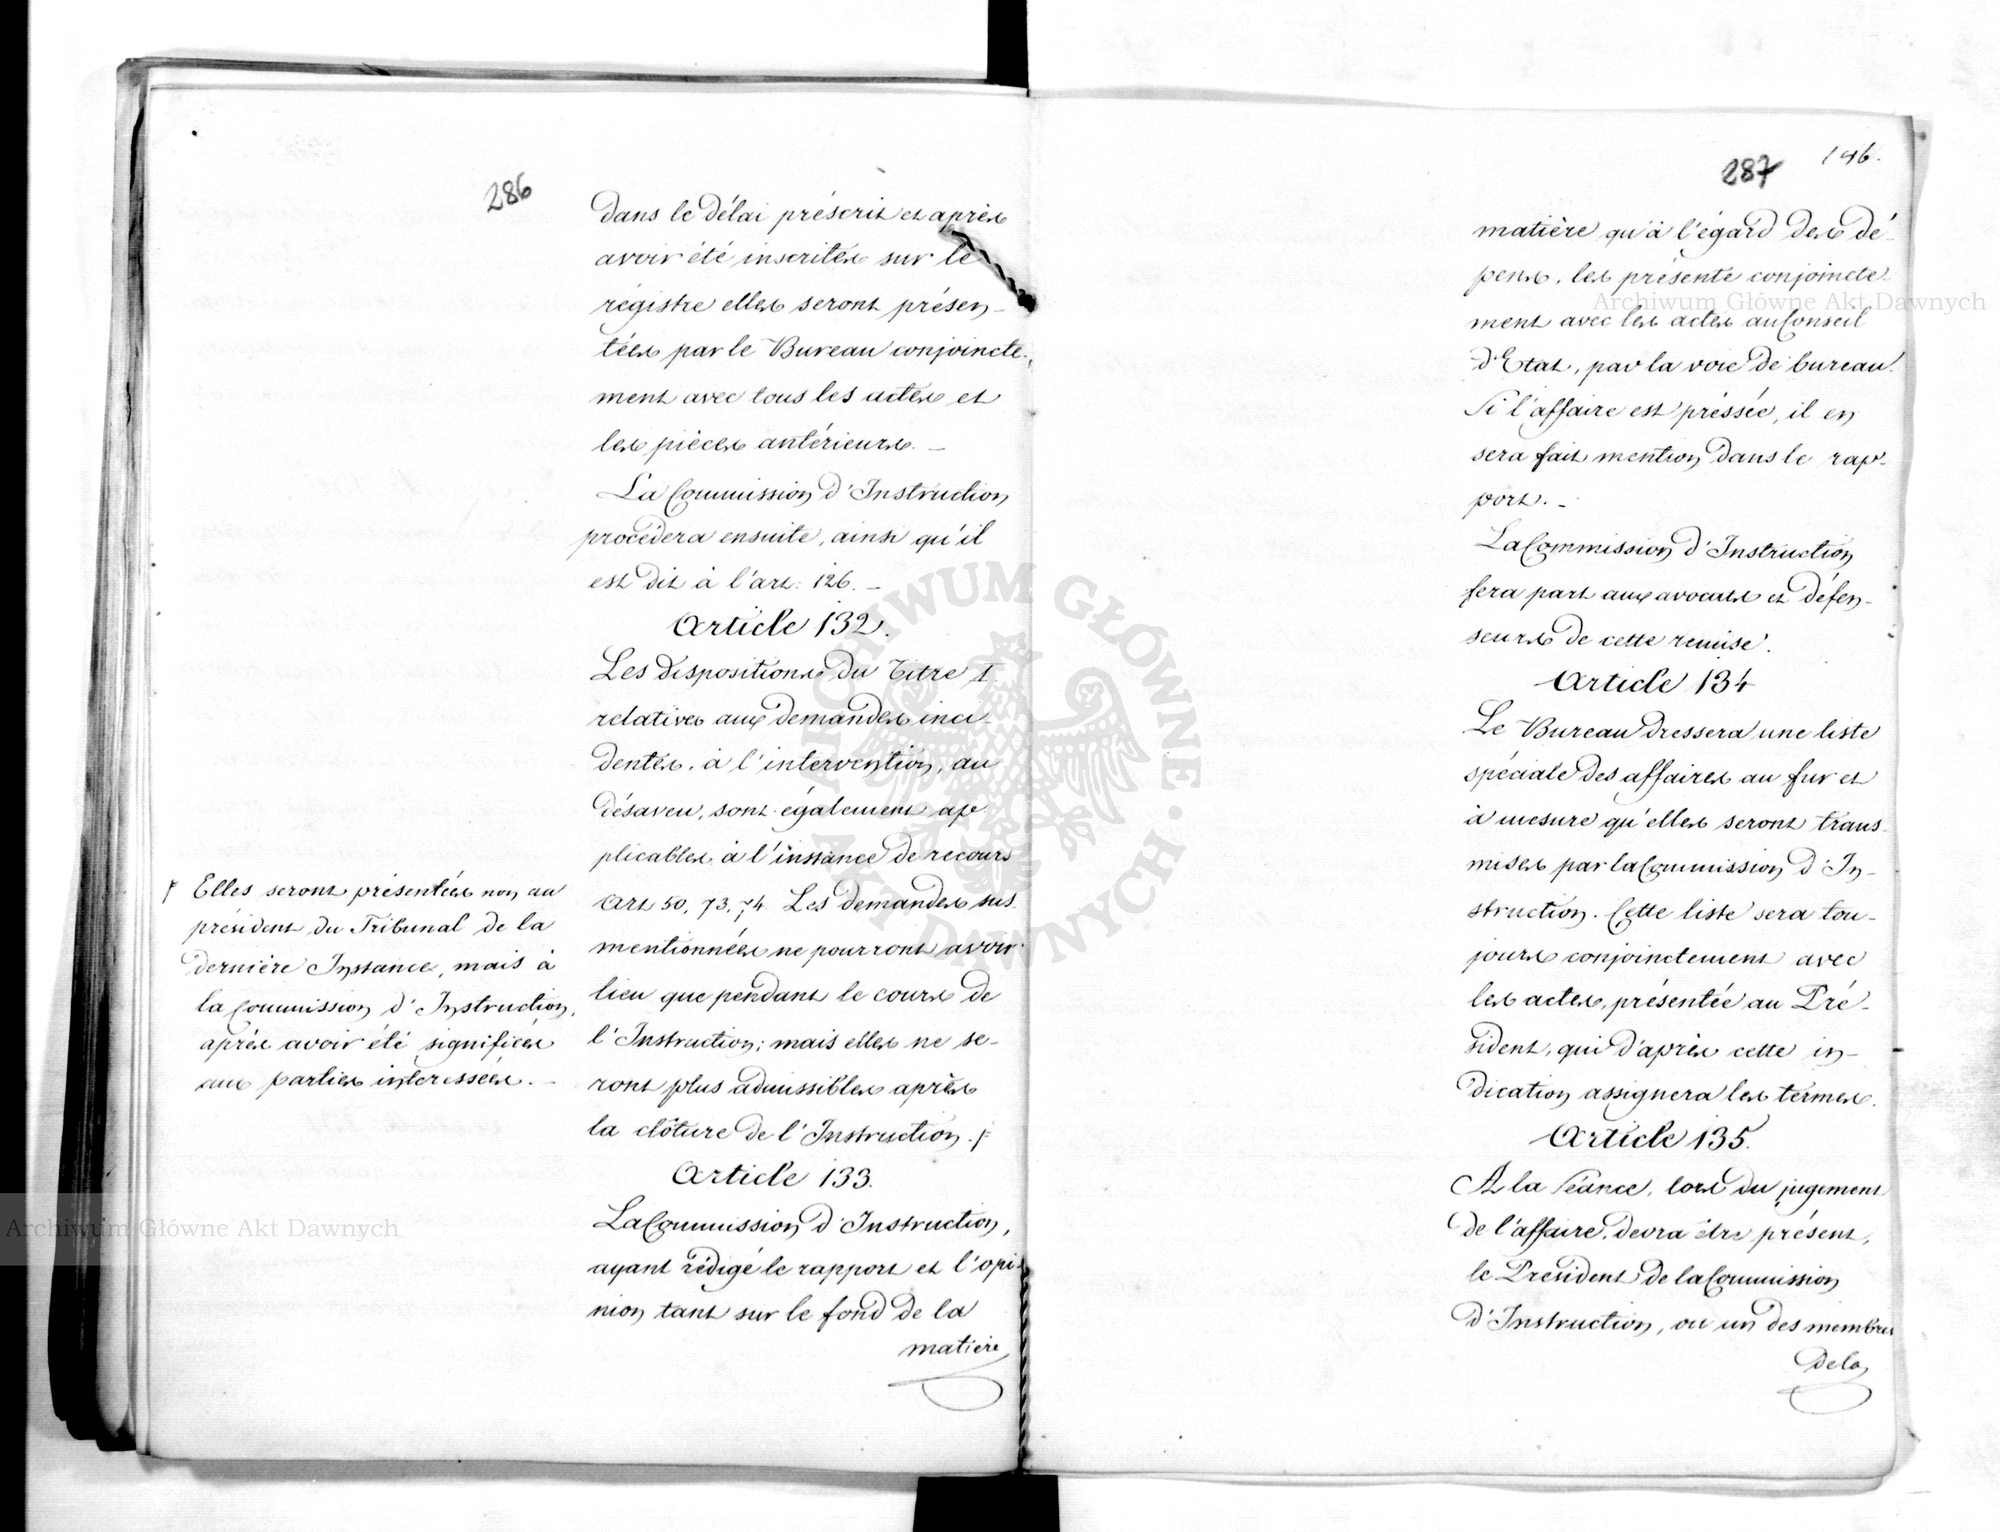 286
dans le délai préscrit et après
avoir été inscrites sur le
régistre elles seront présen-
tées par le Bureau conjoincte-
ment avec tous les actes et
les pièces antérieurs. -
La Commission d'Instruction
procédera ensuite, ainsi qu'il
est dit à l'art: 126. -
Article 132.
Les dispositions du Titre I.
relatives aux demandes inci-
dentes, à l'intervention, au
désaveu, sont également ap-
plicables à l'instance de recours
Art 50, 73, 74. Les demandes sus
mentionnées ne pourront avoir
lieu que pendant le cours de
l'Instruction; mais elles ne se-
ront plus admissibles après
la clôture de l'Instruction. F
Article 133.
La Commission d'Instruction,
ayant rédigé le rapport et l'opi-
nion tant sur le fond de la
matière
F Elles seront présentées non au
président du Tribunal de la
dernière Instance, mais à
la Commission d'Instruction,
après avoir été signifiées
aux parties intéressées. -
287 146.
matière qu'à l'égard des dé-
pens, les présente conjoincte-
ment avec les actes au Conseil
d'Etat, par la voie de bureau.
Si l'affaire est préssée, il en
sera fait mention dans le rap-
port. -
La Commission d'Instruction
fera part aux avocats et défen-
seurs de cette remise.
Article 134
Le Bureau dressera une liste
spéciale des affaires au fur et
à mesure qu'elles seront trans-
mises par la Commission d'In-
struction. Cette liste sera tou-
jours conjoinctement avec
les actes, présentée au Pré-
sident, qui d'après cette in-
dication assignera les termes.
Article 135.
A la séance, lors du jugement
de l'affaire, devra être présent,
le Président de la Commission
d'Instruction, ou un des membres
de la
Archiwum Główne Akt Dawnych
Archiwum Główne Akt Dawnych
ARCHIWUM GŁÓWNE AKT DAWNYCH